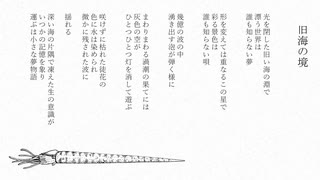 旧海の境
光を閉じた旧い海の淵で
漂う世界は
誰も知らない夢
形を変えては重なるこの星で
彩る景色は
誰も知らない唄
幾億の波の中
湧き出す泡が弾く様に
まわりまわる渦潮の果てには
灰色の空が
ひとつひとつ灯を消して遊ぶ
咲けずに枯れた徒花の
色に水は染められ
微かに残された波に
揺れる
深い海の片隅で凍えた生の意識が
いつかの記憶を象り
運ぶは小さな夢物語